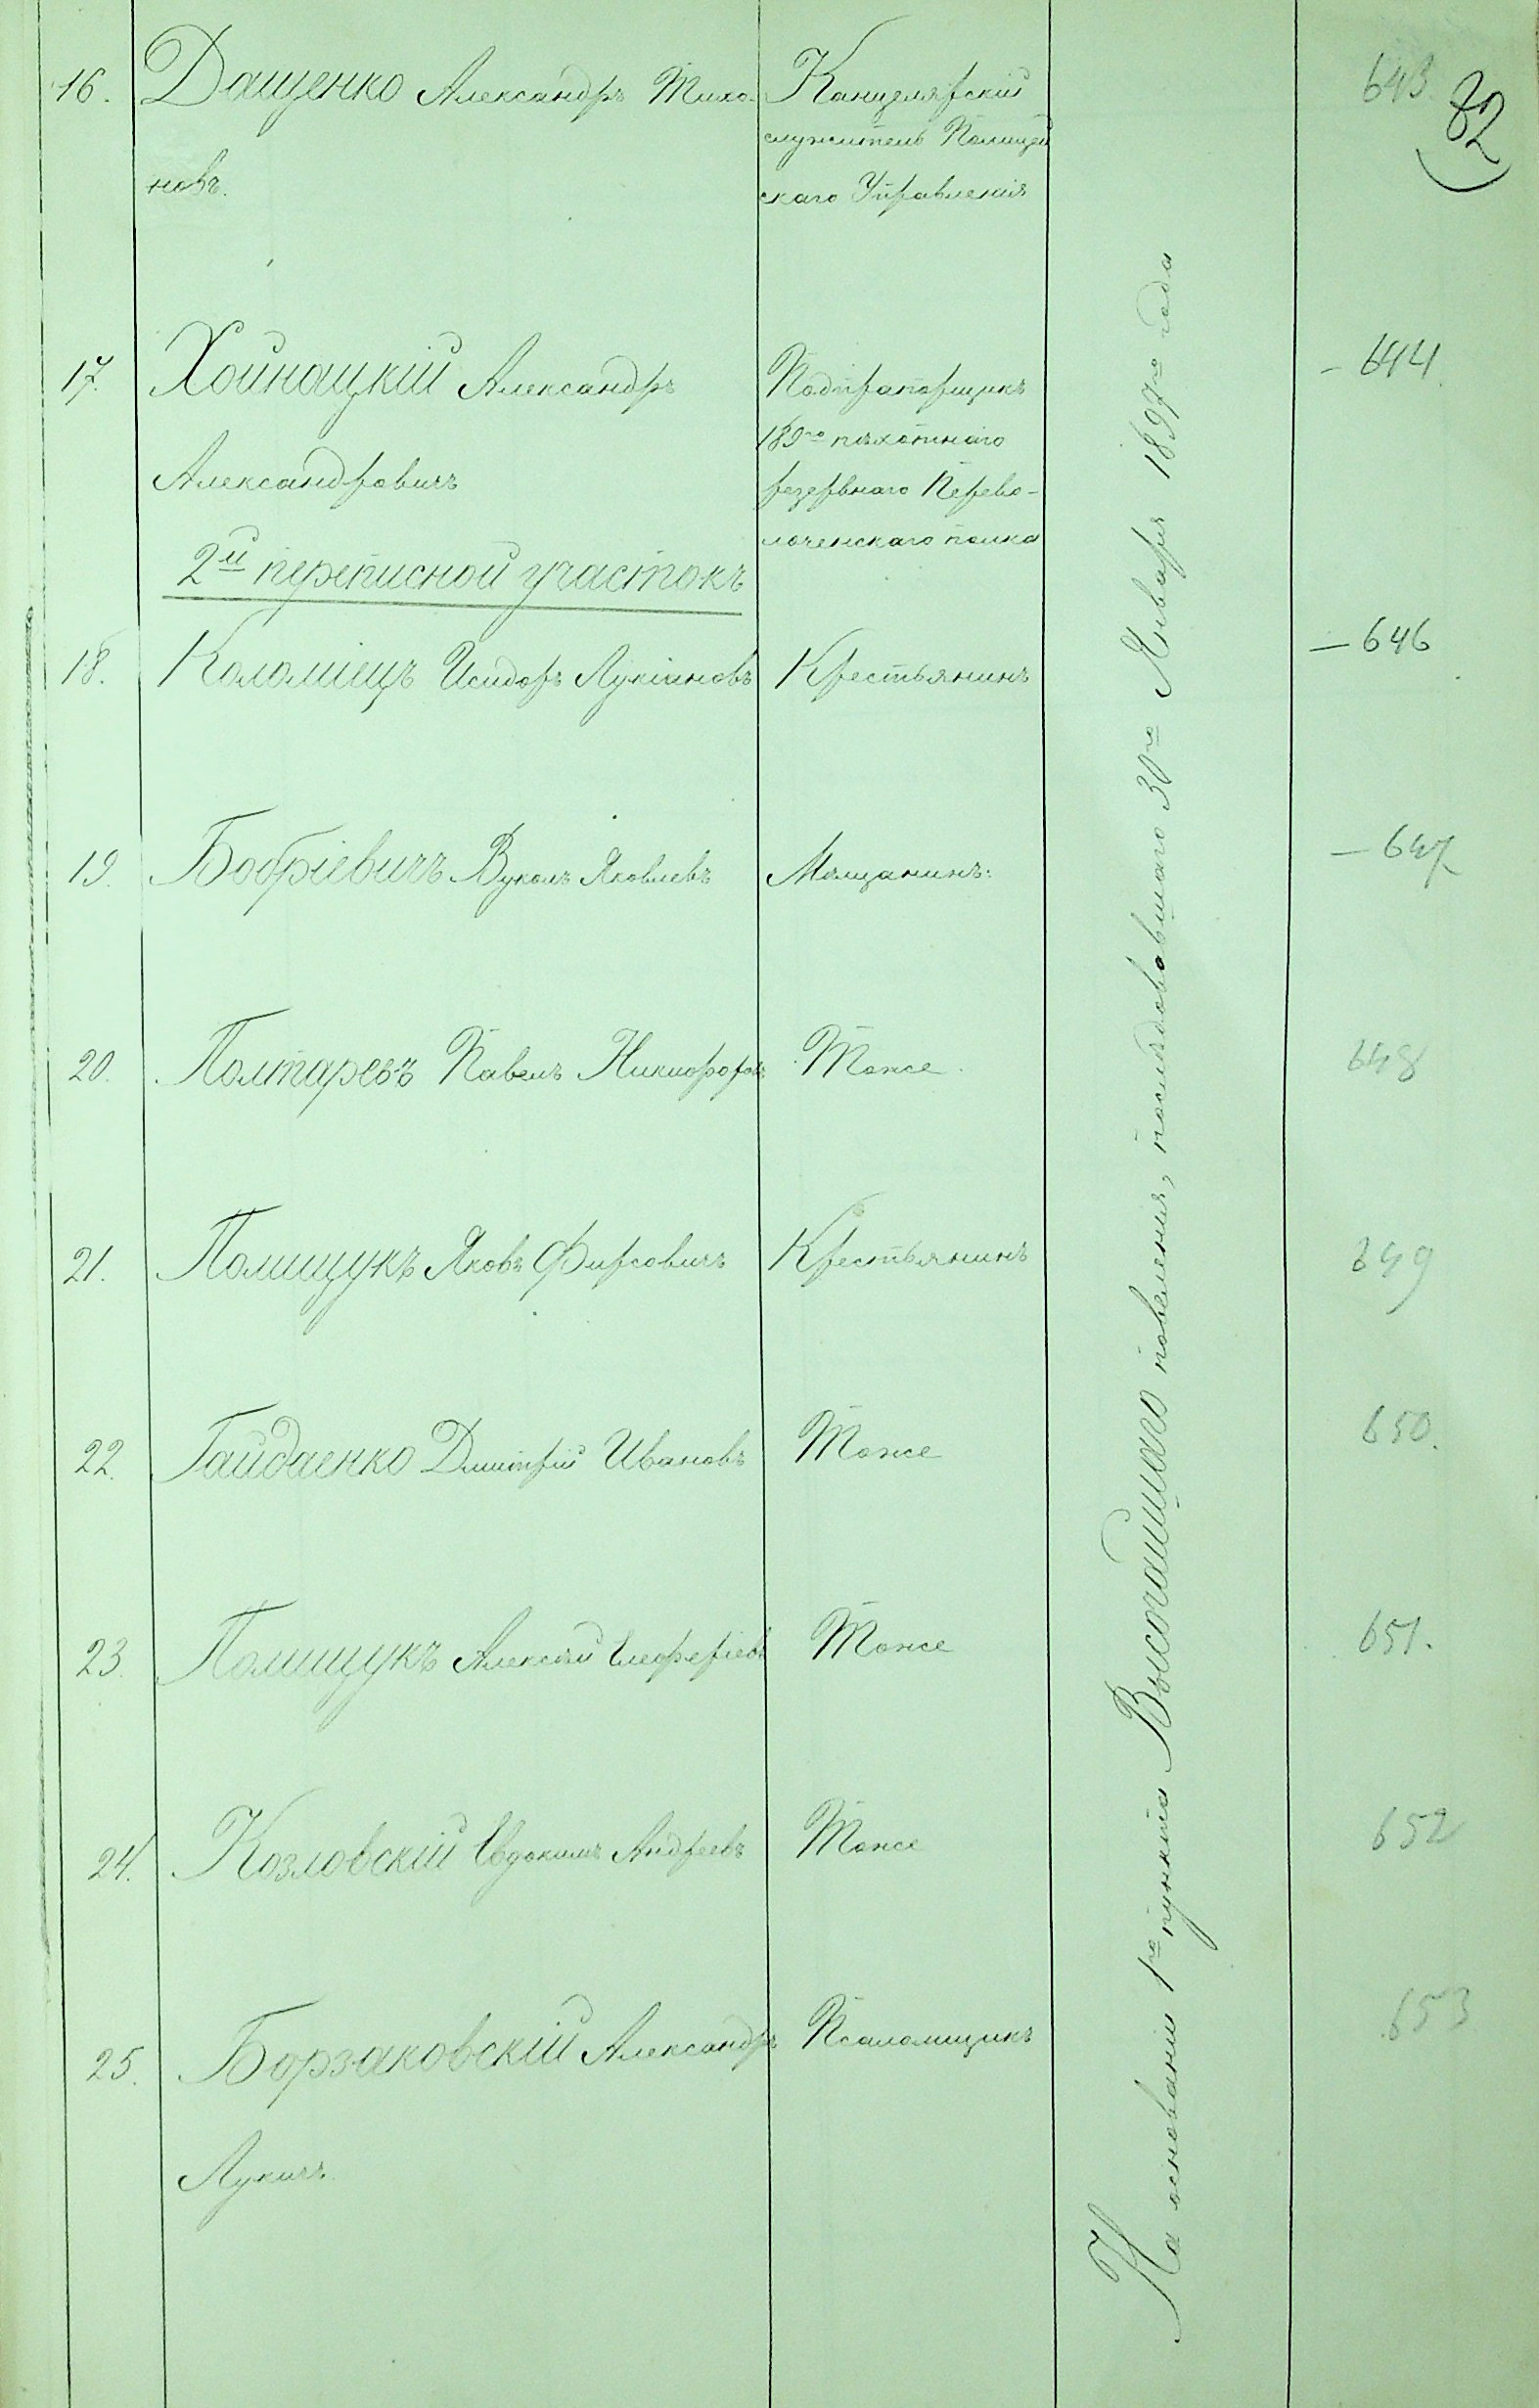 82
16. Дащенко Александръ Тихо- Канцелярскій 643.
служитель Полицей
новъ. скаго Управленія
17. Хойнацкій Александръ Подпрапорщикъ - 644.
189го пѣхотнаго
Александровичъ резервнаго Перево-
лоченскаго полка
2й переписной участокъ
18. Коломіецъ Исидоръ Лукіановъ Крестьянинъ - 646
19. Бобріевичъ Вуколъ Яковлевъ Мѣщанинъ. - 647
20. Полтаревъ Павелъ Никифоровъ Тоже. 648
21. Полищукъ Яковъ Фирсовичъ Крестьянинъ 649
22. Гайдаенко Дмитрій Ивановъ Тоже 650.
23. Полищукъ Алексѣй Елеферіевъ Тоже 651.
24. Козловскій Евдокимъ Андреевъ Тоже 652
25. Борзаковскій Александръ Псаломщикъ 653
Лукичъ.
На основаніи 1го пункта Высочайшаго повеленія, послѣдовавшаго 30го Января 1897го года